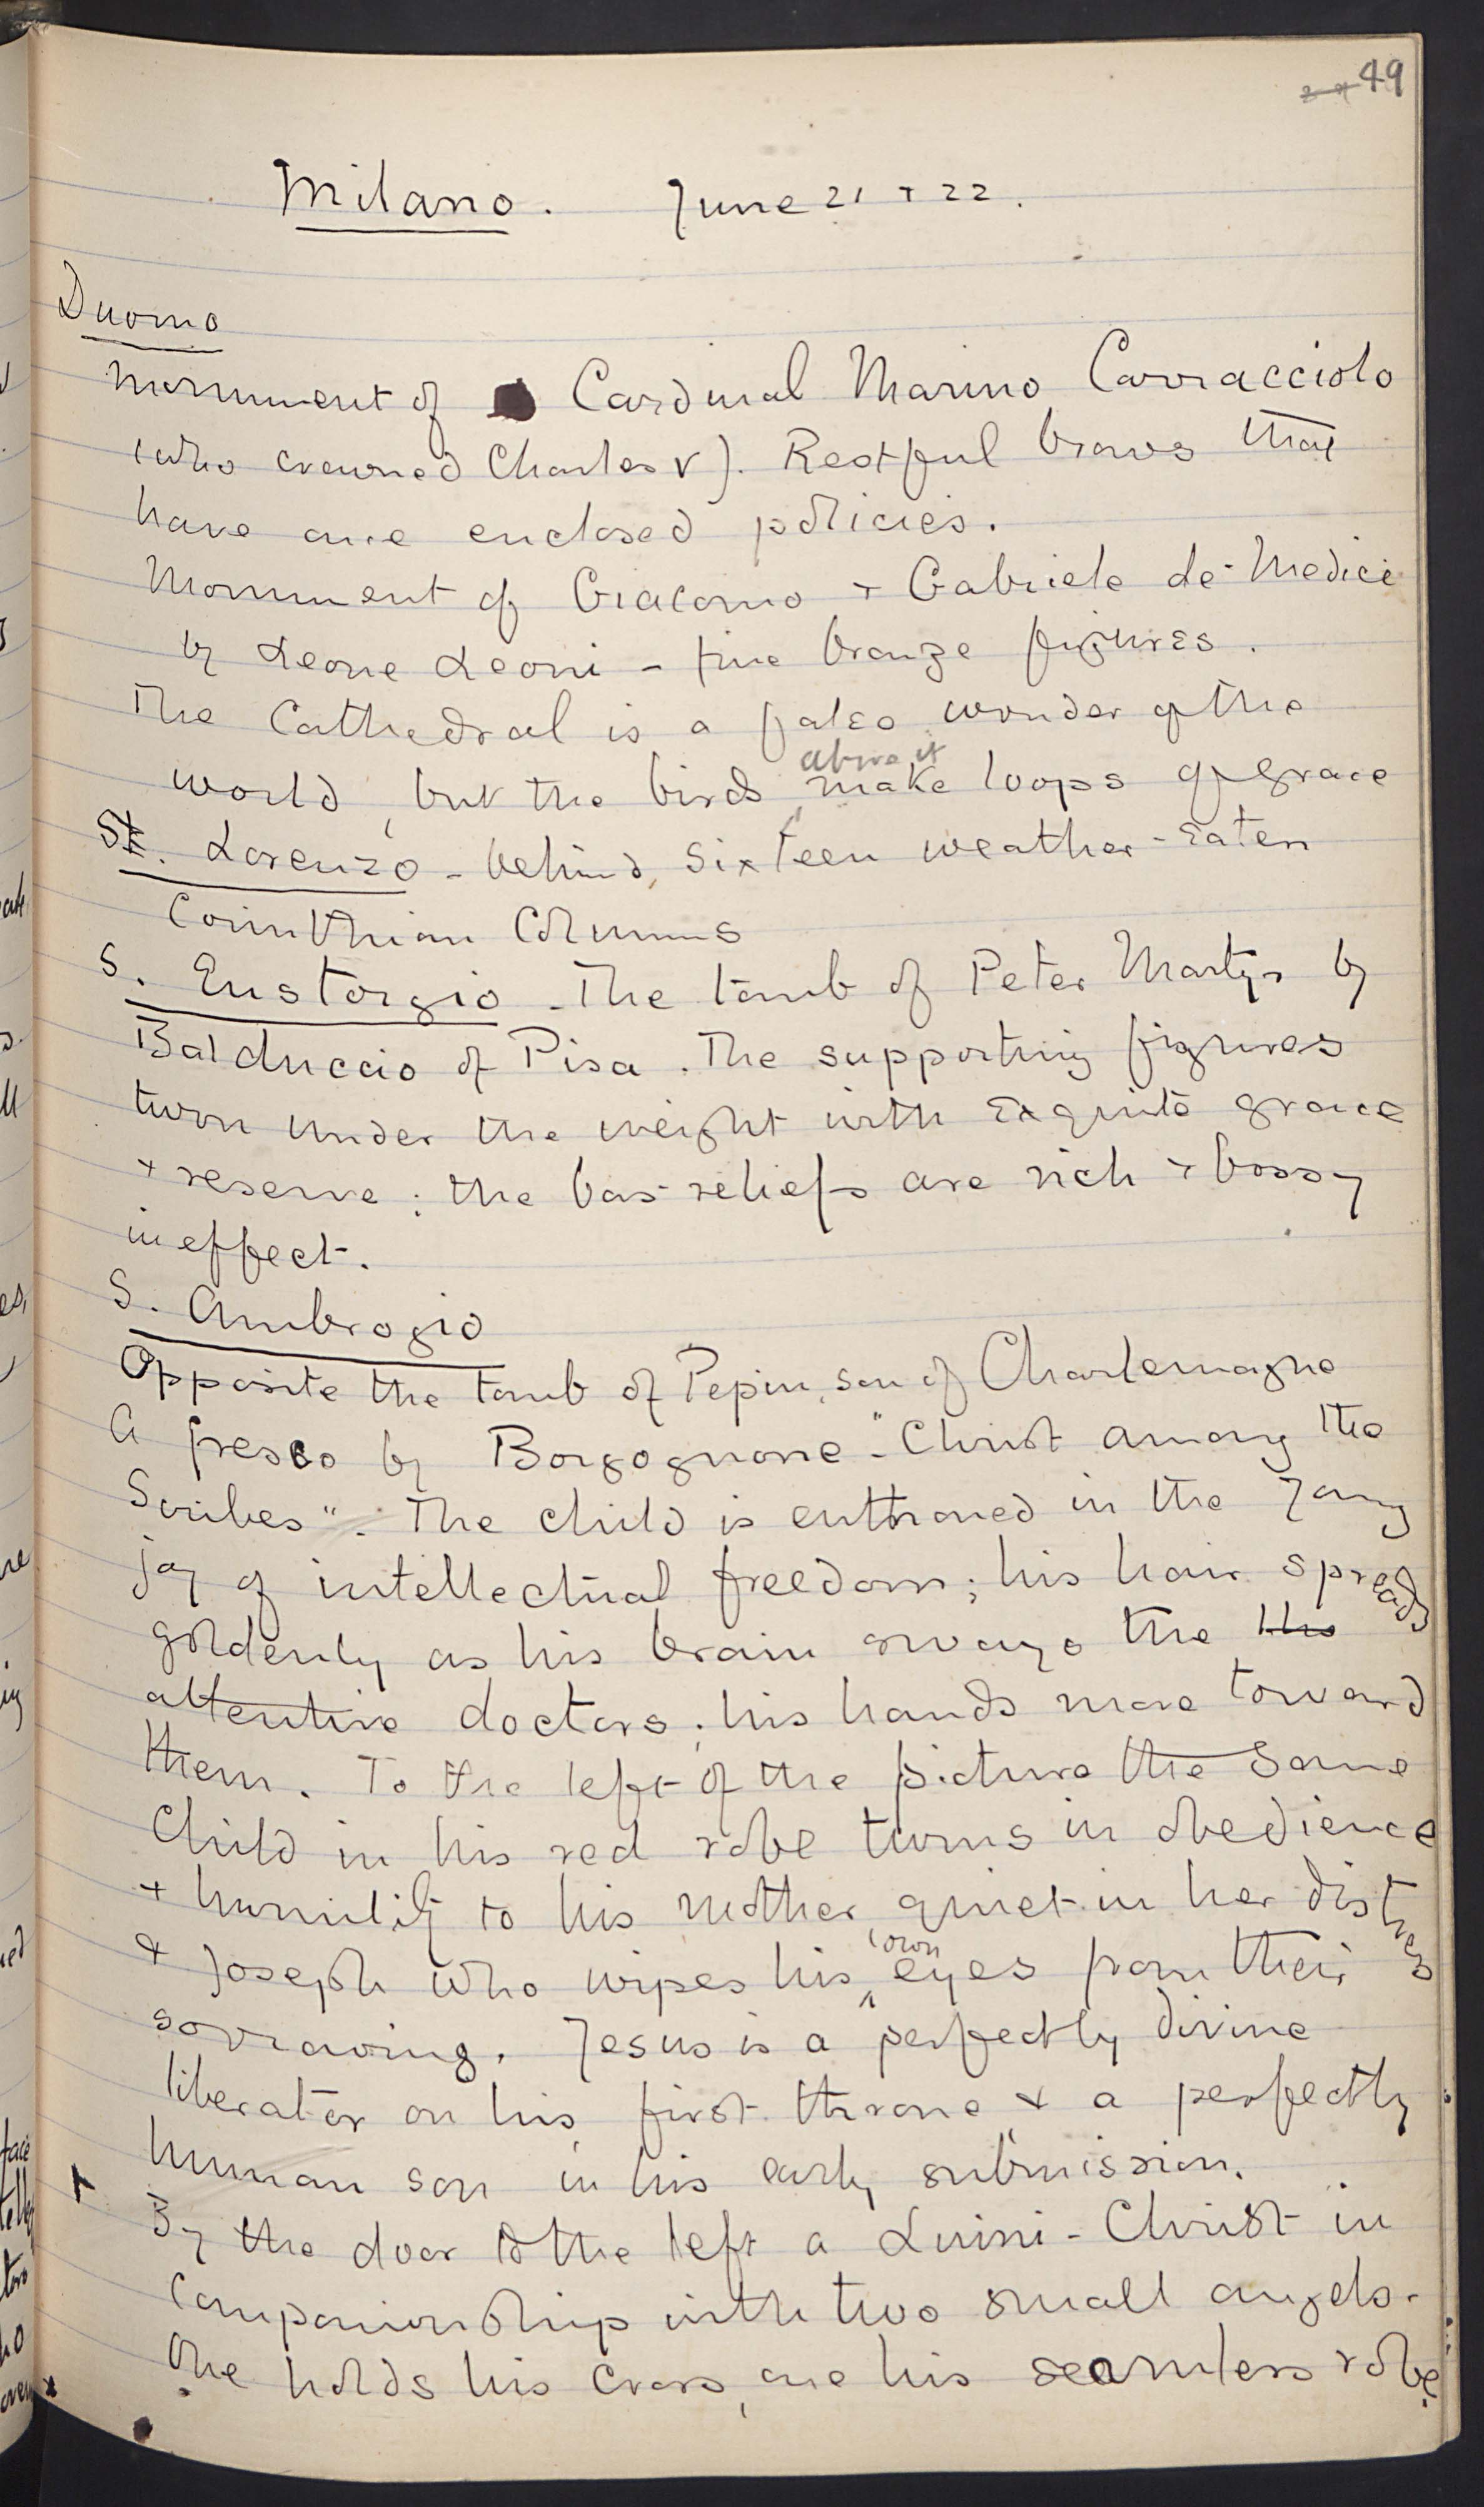 49
Milano. June 21 + 22.
Duomo
Monument of Cardinal Marino Carracciolo
(who crowned Charles V). Restful brows that
have once enclosed policies.
Monument of Giacomo + Gabriele de- Medici
by Leone Leoni - fine bronze figures.
The Cathedral is a false wonder of the
above it
world, but the birds make loops of grace
St. Lorenzo - behind, sixteen weather-eaten
Corinthian Columns
S. Eustorgio - The tomb of Peter Martyr by
Balduccio of Pisa. The supporting figures
turn under the weight with exquisite grace
+ reserve: the bas-reliefs are rich + bossy
in effect.
S. Ambrogio
Opposite the tomb of Pepin, son of Charlemagne
a fresco by Borgognone - "Christ among the
Scribes". The child is enthroned in the young
joy of intellectual freedom; his hair spreads
goldenly as his brain sways the the
attentive doctors; his hands move toward
them. To the left of the picture the same
Child in his red robe turns in obedience
+ humility to his mother, quiet in her distress
own
& Joseph who wipes his eyes from their
sorrowing. Jesus is a perfectly divine
liberator on his first throne & a perfectly
human son in his early submission.
By the door to the left a Luini - Christ in
Companionship with two small angels.
One holds his Cross, one his seamless robe.